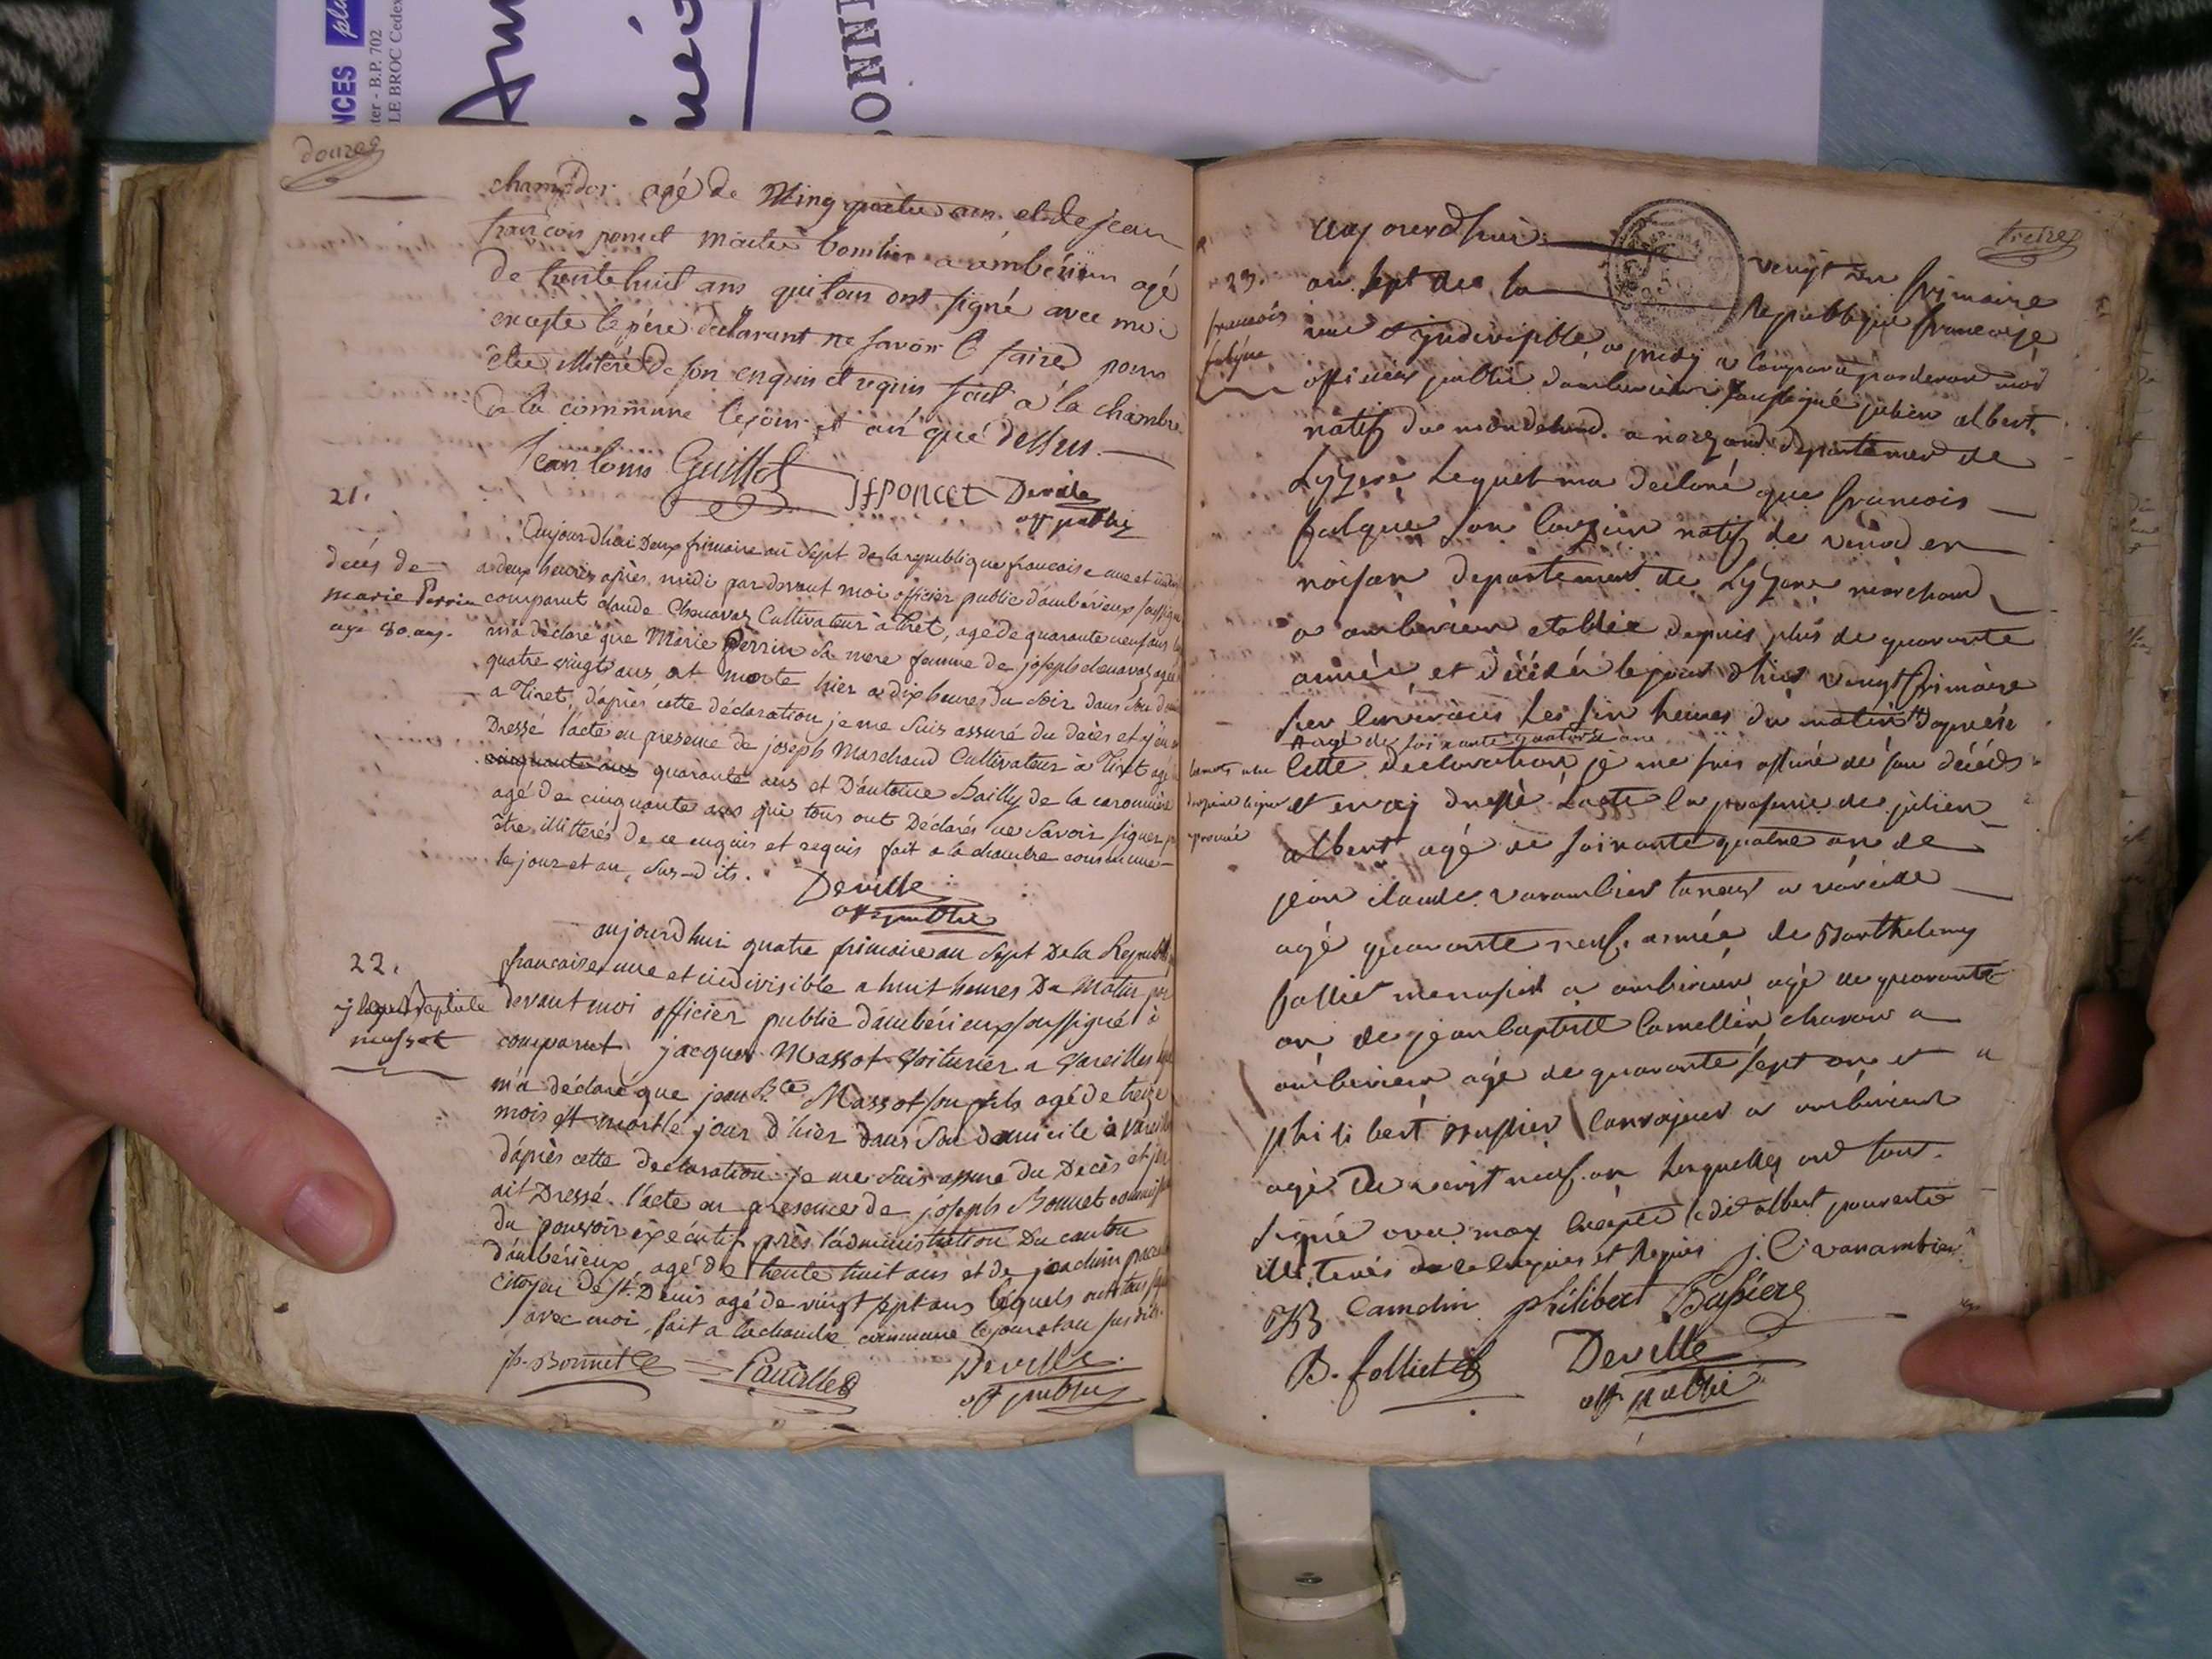 NCES plu
ter - B.P. 702
LE BROC Cedex
Am
ONN
douze
champdor agé de Vingt quatre ans et de jean
françois poncet maitre a ambérieux agé
de trente huit ans qui tous ont signé avec moi
excepte le père declarant ne savoir le faire pour
être illitéré de son enquis et requis fait à la chambre
de la commune lesjour et an que dessus.
Jean louis Guillot
JfPONCET Deville
off public
21.
décés de
marie Perrin
age 80 ans.
Aujourd'hui Deux frimaire an Sept de la republique francaise une et indiv
a deux heures après midi par devant moi officier public d'ambérieux soussigné
comparut claude Chenavaz Cultivateur à tiret, agé de quarante neuf ans
m'a déclaré que Marie Perrin Sa mere femme de joseph chenavaz agée
quatre vingt ans est morte hier a dix heures du Soir dans Son
a Tiret, d'après cette déclaration je me Suis assuré du décès et j'en
Dressé l'acte en presence de joseph Marchand Cultivateur à Tiret agé
cinquante ans quarante ans et D'antoine Bailly de la
agé de cinquante ans qui tous ont Déclarés ne Savoir signer
être illitterés de ce enquis et requis fait a la chambre commune
le jour et an, Sus-dits.
Deville
off public
22.
jean Baptiste
massot
aujourd'hui quatre frimaire an Sept De la Republ
francaise une et indivisible a huit heures Du Matin par
devant moi officier public d'ambérieux soussigné à
comparut jacques Massot Voiturier a Vareilles
m'a déclaré que jean Bte Massot son fils agé de treize
mois est mort le jour d'hier dans Son domicile à Vareille
d'après cette declaration je me Suis assuré Du Decès et j'en
ait Dressé l'acte en presence de joseph Bonnet commiss
du pouvoir exécutif près l'administration Du canton
d'ambérieux, agé de trente huit ans et de joachim
citoyen de St. Denis agé de vingt sept ans léquels ont tous signé
avec moi, fait a la chambre commune le jour et an susdits.
jh. Bonnet
Deville
off public
treize
23.
francois
falque
Aujourd'hui vingt un frimaire
an sept de la Republique francaise
une et jndivisible a midy a comparu pardevant moi
officier public d'ambérieux soussigné julien albert
natif departement de
Lyzere Lequel ma declaré que francois
falque son cousin natif de
departement de Lyzere marchand
a ambérieux etablie depuis plus de quarante
année et décédé le jour d'hier vingt frimaire
sur les heures du matin d'aprés
Agé de soixante quatorze ans
cette declaration je me suis assuré de son décéds
et en aj dressé lacte en presence de julien
albert agé de soixante quatre an de
jean claude varambier a vareille
agé quarante neuf année de Barthelemy
folliet menuisier a ambérieux agé de quarante
an de jean baptiste camellin charon a
ambérieux agé de quarante sept an et
philibert a ambérieux
agé de vingt neuf an lesquelles ont tous
signé avec moy excepté ledit albert pour estre
illiterés de ce enquis et requis j. C varambier
JB Camelin philibert
B. folliet
Deville
off public